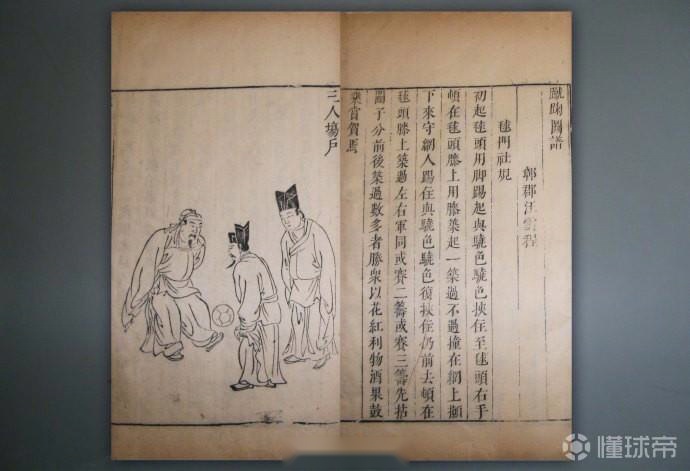 蹴踘圖譜
鄣郡汪雲程
毬門社規
初起毬頭用脚踢起與驍色驍色挾住至毬頭右手
頓在毬頭膝上用膝築起一築過不過撞在網上攧
下來守網人踢住與驍色驍色復挾住仍前去頓在
毬頭膝上築過左右軍同或賽二籌或賽三籌先拈
鬮子分前後築過數多者勝衆以花紅利物酒果鼓
樂賞賀焉
三人塲戶
懂球帝